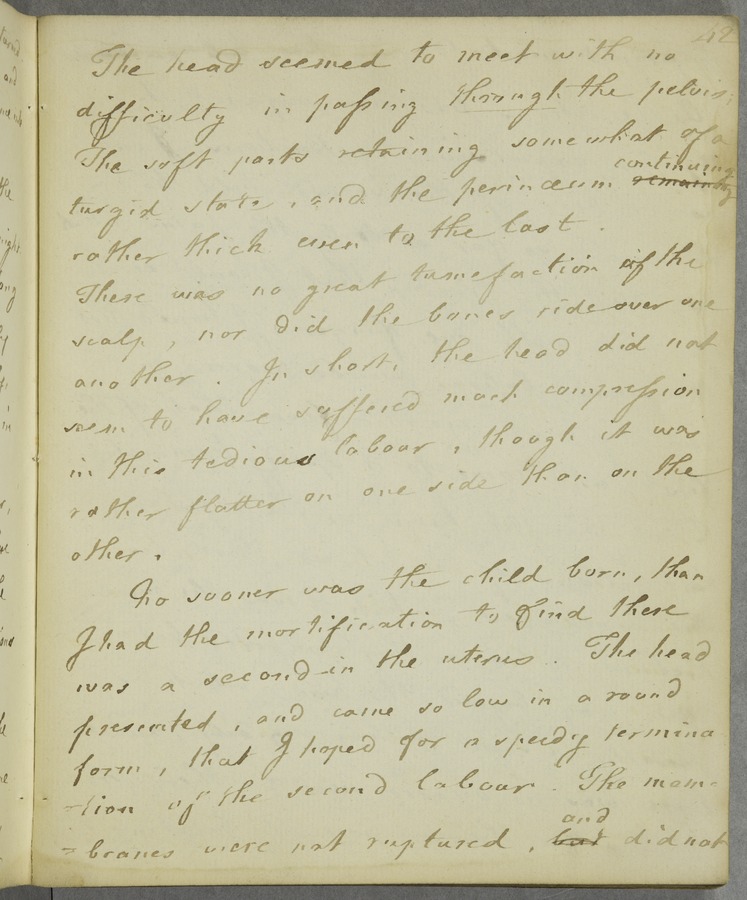 42
The head seemed to meet with no
difficulty in passing through the pelvis;
The soft parts retaining somewhat of a
continuing
turgid state, and the perinæum remaining
rather thick even to the last.
There was no great tumefaction of the
scalp, nor did the bones ride over one
another. In short, the head did not
seem to have suffered much compression
in this tedious labour, though it was
rather flatter on one side than on the
other.
No sooner was the child born, than
I had the mortification to find there
was a second in the uterus. The head
presented, and came so low in a round
form, that I hoped for a speedy termina
-tion of the second labour. The mem-
and
=branes were not ruptured, but did not